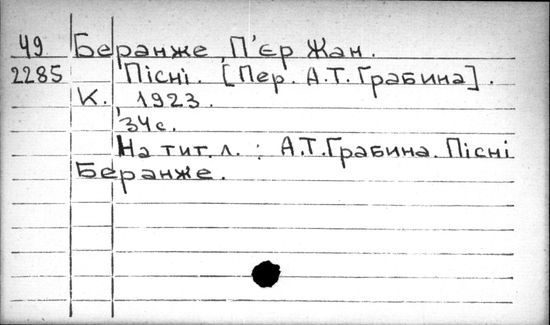 49 Беранже, П'єр Жан.
2285 Пісні. [Пер. А.Т.Грабина].
К., 1923.
34с.
На тит.л.: А.Т.Грабина. Пісні
Беранже.